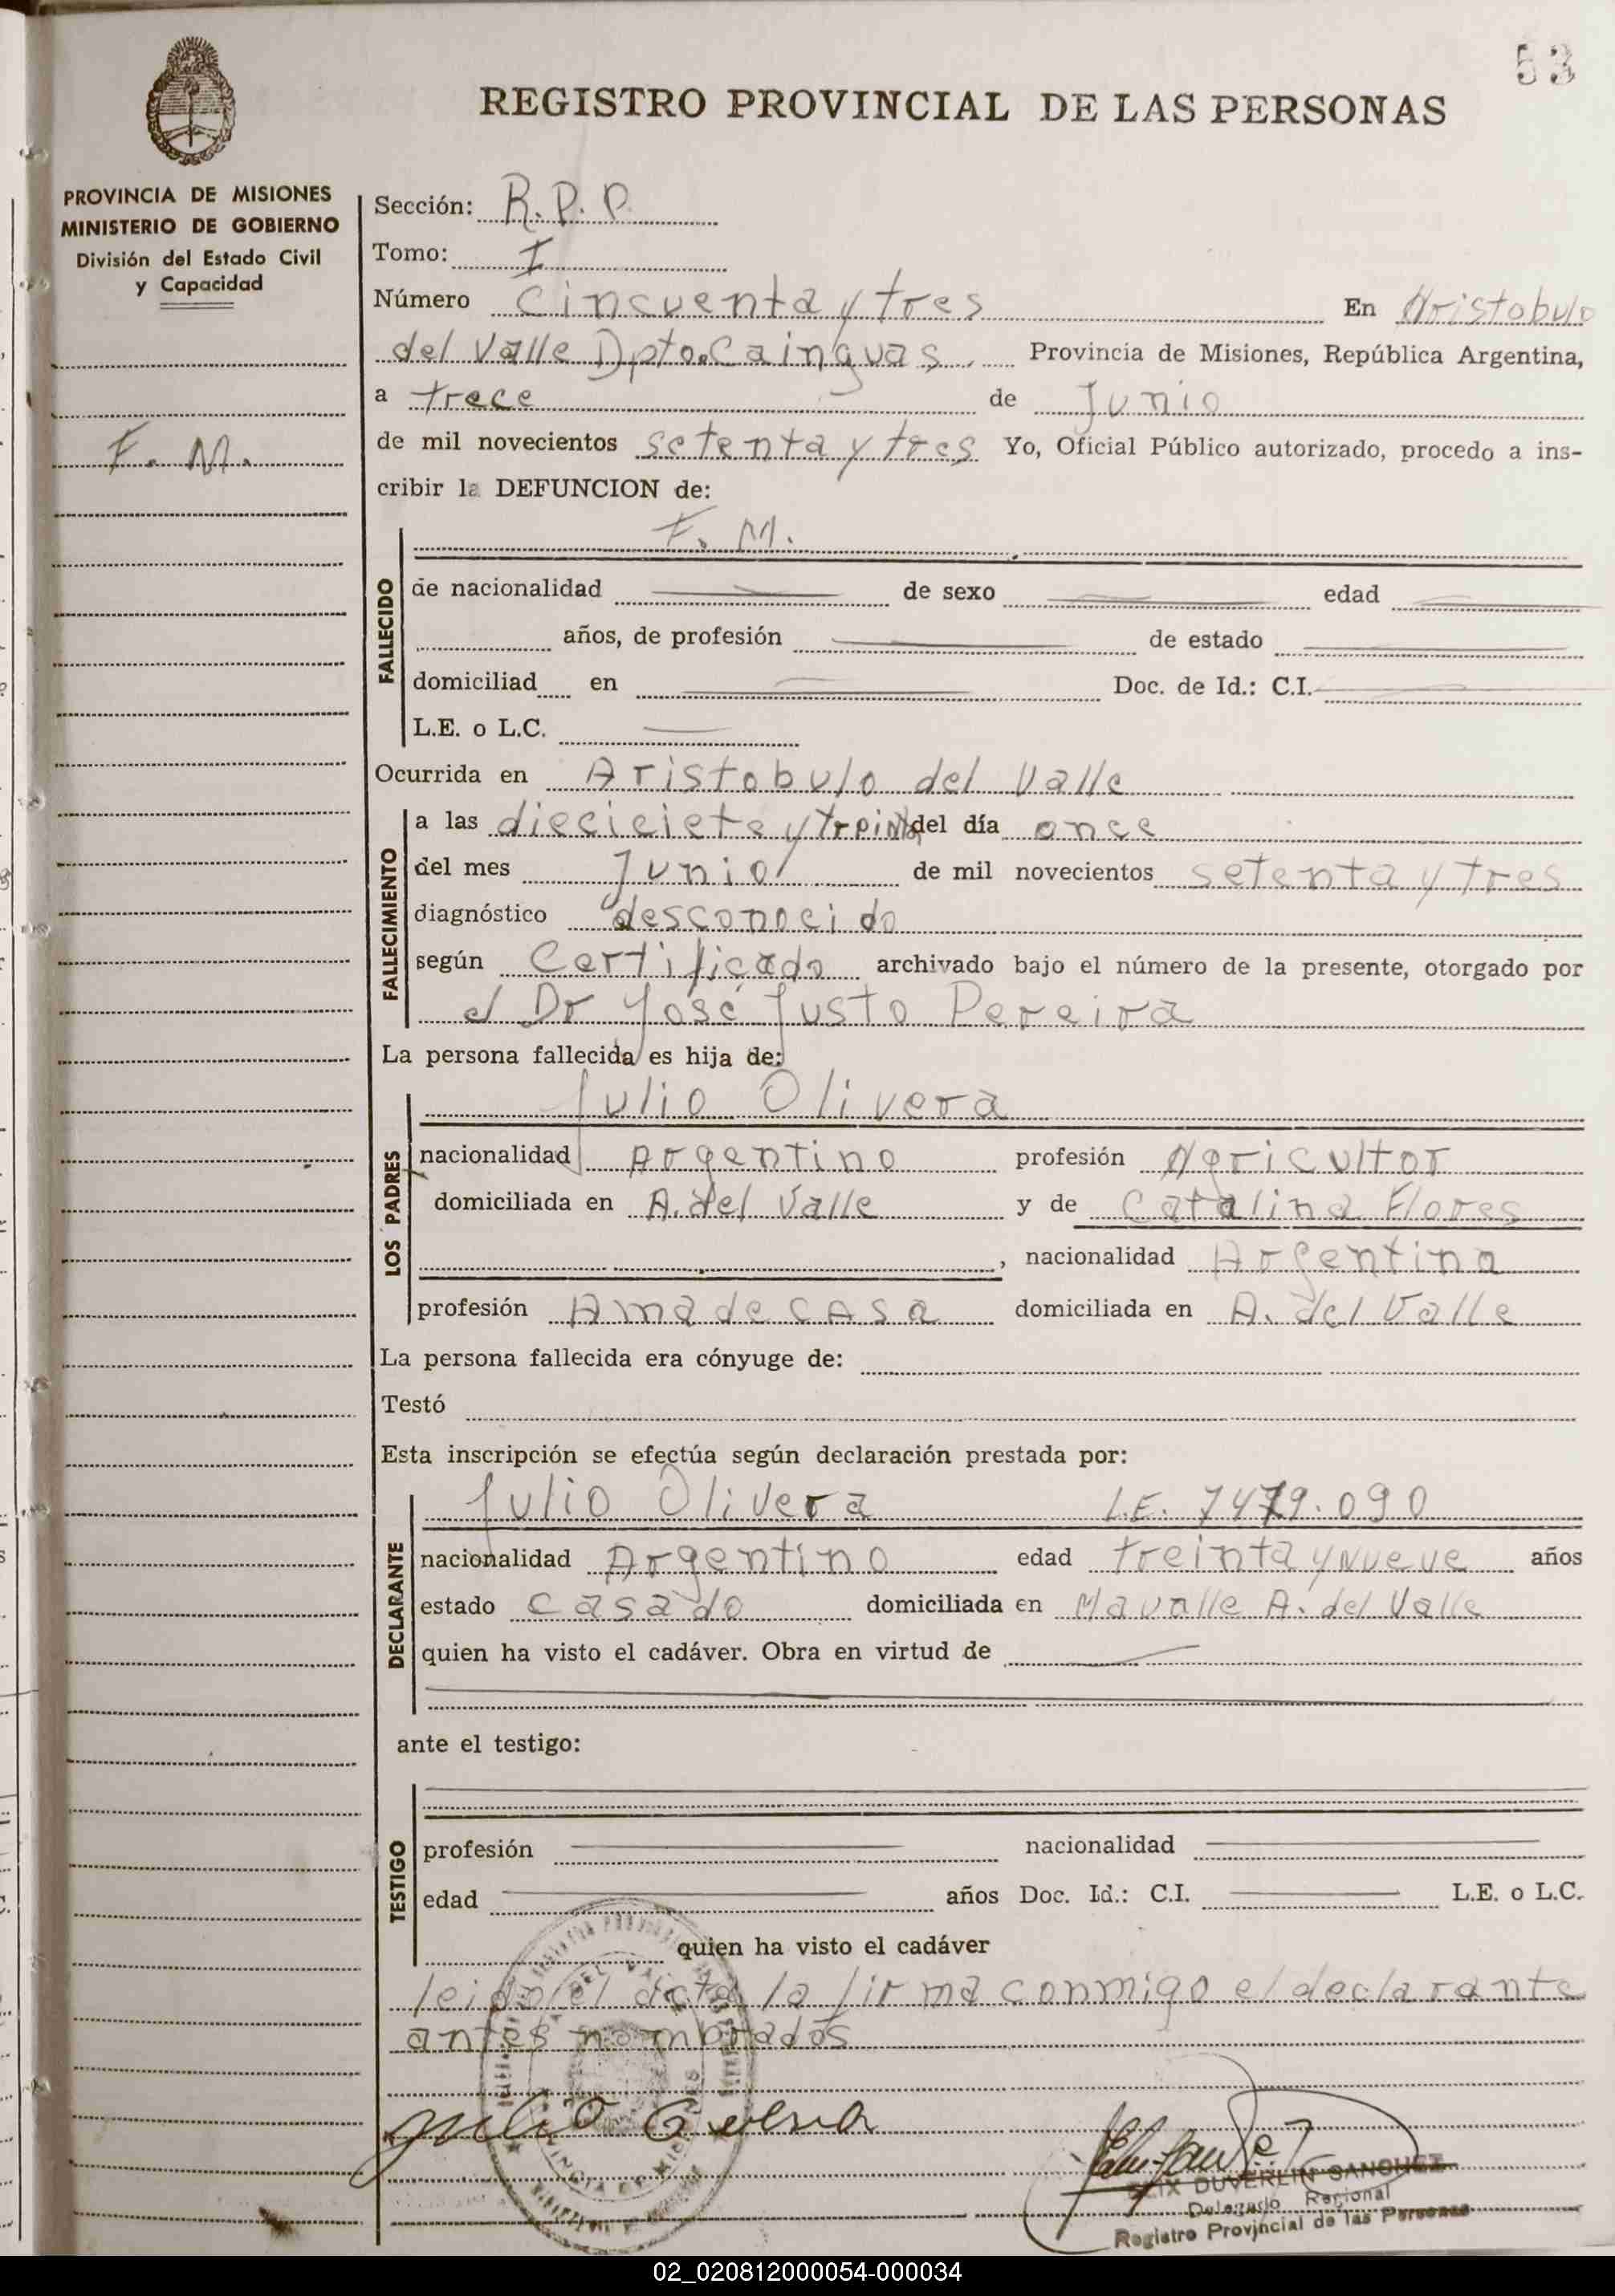 53
REGISTRO PROVINCIAL DE LAS PERSONAS
PROVINCIA DE MISIONES
MINISTERIO DE GOBIERNO
División del Estado Civil
y Capacidad
F. M.
Sección: R.P.P.
Tomo: I
Número Cincuenta y tres En Aristobulo
del Valle Dpto. Cainguas, Provincia de Misiones, República Argentina,
a trece de Junio
de mil novecientos setenta y tres Yo, Oficial Público autorizado, procedo a ins-
cribir la DEFUNCION de:
F. M.
FALLECIDO
de nacionalidad de sexo edad
años, de profesión de estado
domiciliad en Doc. de Id.: C.I.
L.E. o L.C.
Ocurrida en Aristobulo del Valle
FALLECIMIENTO
a las dieciciete y treinta del día once
del mes Junio de mil novecientos setenta y tres
diagnóstico desconocido
según Certificado archivado bajo el número de la presente, otorgado por
el Dr José Justo Pereira
La persona fallecida es hija de:
LOS PADRES
Julio Olivera
nacionalidad Argentino profesión Agricultor
domiciliada en A. del Valle y de Catalina Flores
, nacionalidad Argentina
profesión Ama de casa domiciliada en A. del Valle
La persona fallecida era cónyuge de:
Testó
Esta inscripción se efectúa según declaración prestada por:
DECLARANTE
Julio Olivera L.E. 7479.090
nacionalidad Argentino edad treinta y nueve años
estado casado domiciliada en Mavalle A. del Valle
quien ha visto el cadáver. Obra en virtud de
ante el testigo:
TESTIGO
profesión nacionalidad
edad años Doc. Id.: C.I. L.E. o L.C.
quien ha visto el cadáver
leido el acta la firma conmigo el declarante
antes nombrados
Julio
DUVERLIN SANCHEZ
Delegado Regional
Registro Provincial de las Personas
02_020812000054-000034